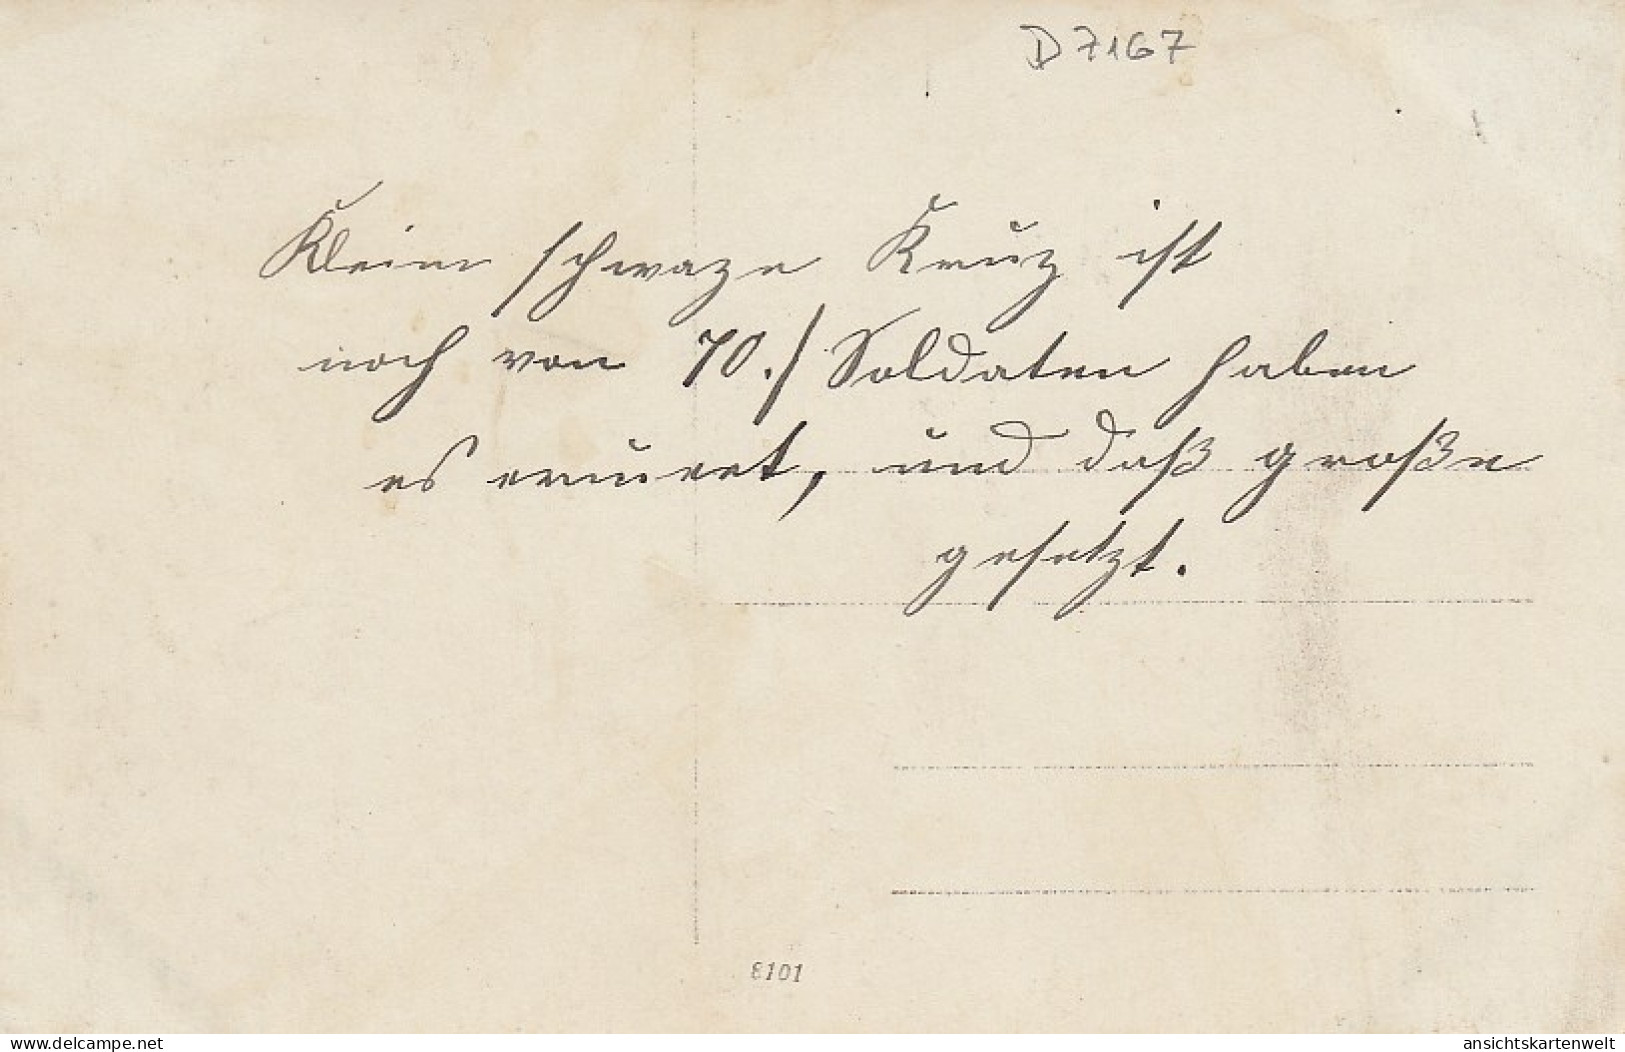 D 7167
Kleine schwaze Kreuz ist
noch von 70./ Soldaten haben
es erneuert, und daß große
gesetzt.
8101
www.delcampe.net
ansichtskartenwelt